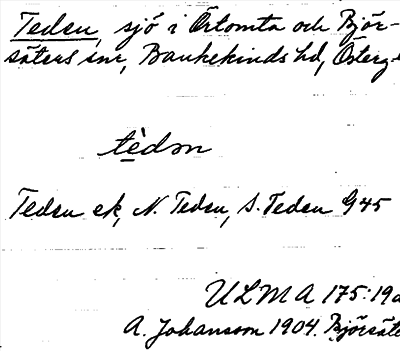 Teden, sjö i Örtomta och Björ-
säters snr, Bankekinds hd, Österg
tèdən
Teden ek, N. Teden, S. Teden G45
ULMA 175:19a
A. Johansson 1904. Björsäte